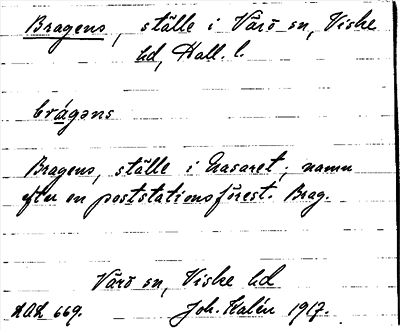 Bragens, ställe i Värö sn, Viske
hd, Hall. l.
brágəns
Bragens, ställe i Nasaret; namn
efter en poststationsförest. Brag.
Värö sn, Viske hd
669.
Joh. Kalén 1917.